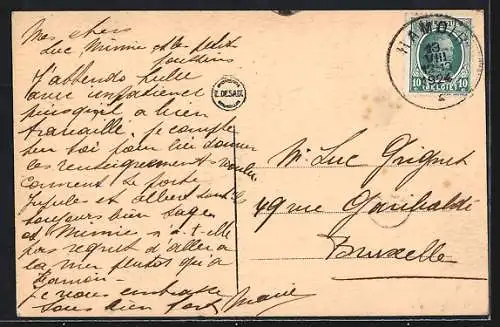 Mes chers
Luc Mimie et les petits
poussins
J'attends Lulle
avec impatience
puisqu'il a bien
travaillé, je compte
sur toi pour lui donner
les renseignements voulus
Comment se porte
Jules et Albert sont-ils
toujours bien sages
et Mimie n'a-t-elle
pas regret d'aller à
la mer plutôt qu'à
Hamoir
Je vous embrasse
tous bien fort Marie
E. DESAIX
HAMOIR
19
VIII
1924
10 BELGIE 10
Mr Luc Grignet
49 rue Garibaldi
Bruxelles